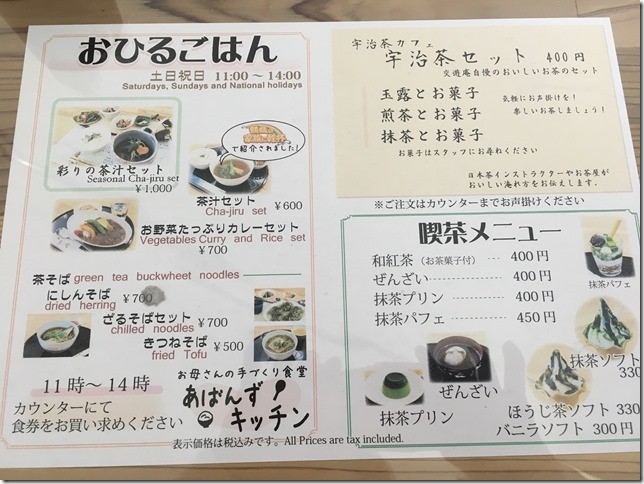 おひるごはん
土日祝日 11:00～14:00
Saturdays, Sundays and National holidays
で紹介されました!
彩りの茶汁セット
Seasonal Cha-jiru set
¥1,000
茶汁セット
Cha-jiru set ¥600
お野菜たっぷりカレーセット
Vegetables Curry and Rice set
¥700
茶そば green tea buckwheat noodles
にしんそば
dried herring ¥700
ざるそばセット
chilled noodles ¥700
きつねそば
fried Tofu ¥500
11時～14時
カウンターにて
食券をお買い求めください
お母さんの手づくり食堂
あばんず
キッチン
宇治茶カフェ
宇治茶セット 400円
交遊庵自慢のおいしいお茶のセット
玉露とお菓子
煎茶とお菓子
抹茶とお菓子
気軽にお声掛けを!
楽しいお茶しましょう!
お菓子はスタッフにお尋ねください
日本茶インストラクターやお茶屋が
おいしい淹れ方をお伝えします。
※ご注文はカウンターまでお声掛けください
喫茶メニュー
和紅茶(お茶菓子付) --- 400円
ぜんざい ---------- 400円
抹茶プリン ---------- 400円
抹茶パフェ ---------- 450円
抹茶パフェ
抹茶ソフト
330
ぜんざい
抹茶プリン
ほうじ茶ソフト 330
バニラソフト 300円
表示価格は税込みです。All Prices are tax included.